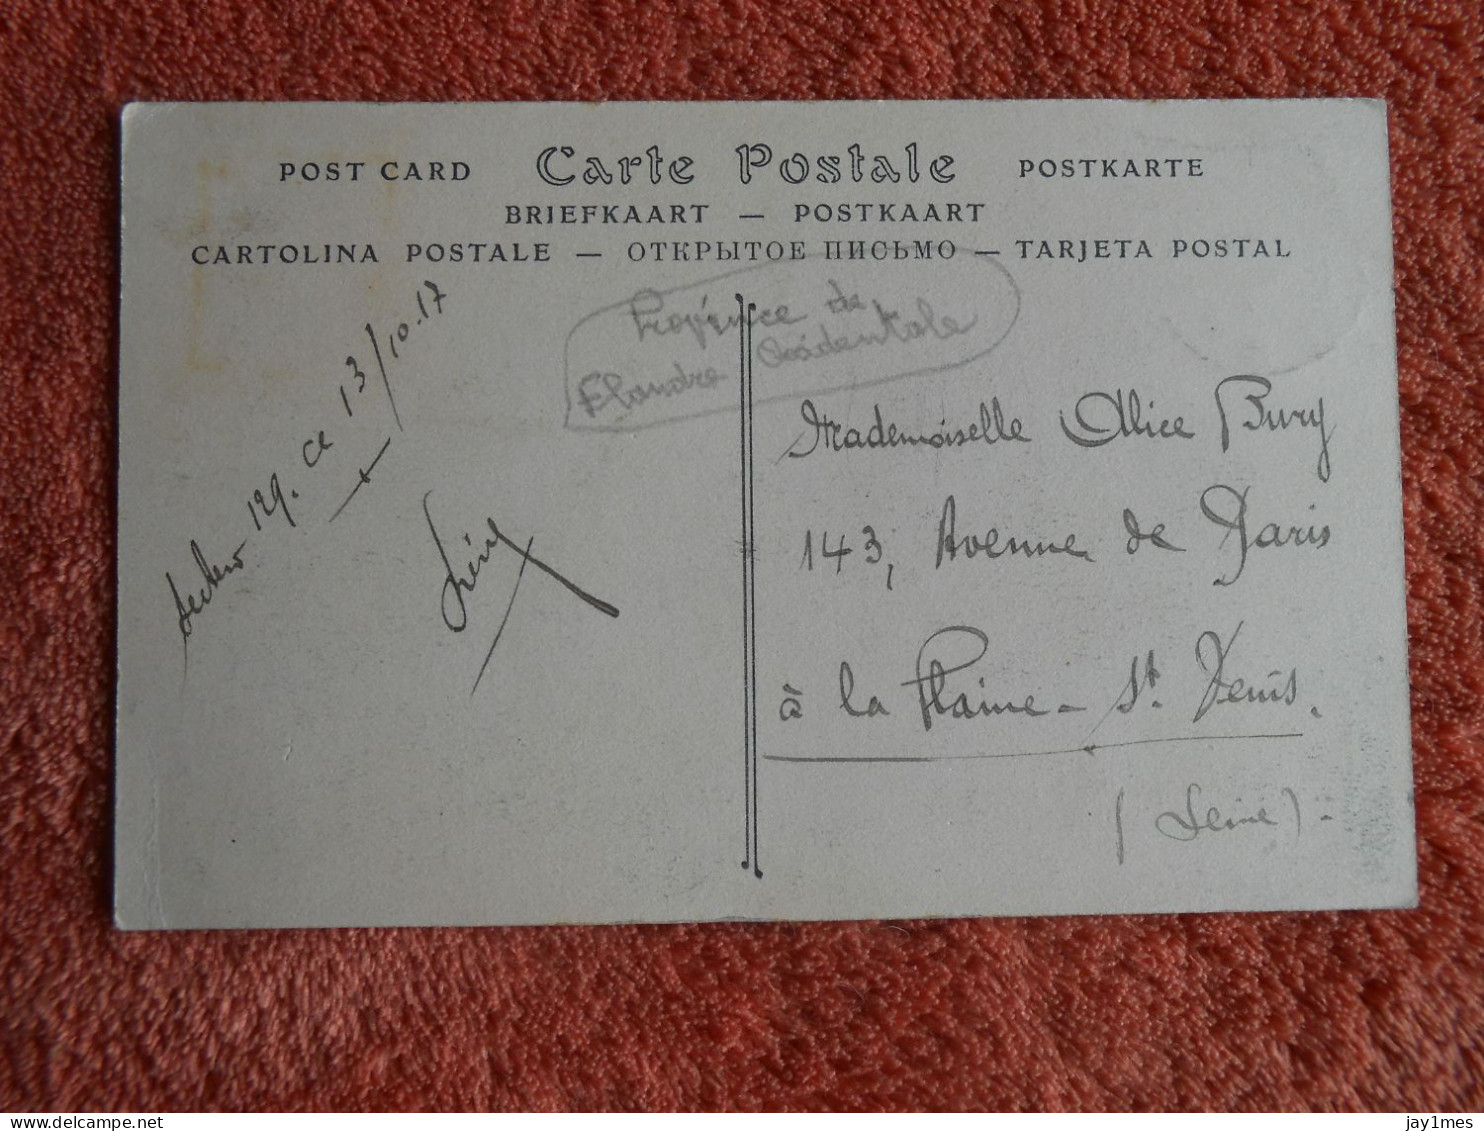 POST CARD Carte Postale POSTKARTE
BRIEFKAART — POSTKAART
CARTOLINA POSTALE — ОТКРЫТОЕ ПИСЬМО — TARJETA POSTAL
Province de
Flandre Occidentale
Secteur 129. ce 13/10.17
Mademoiselle Alice Bury
143, Avenue de Paris
à la Plaine - St. Denis.
(Seine)
delcampe.net
jay1mes